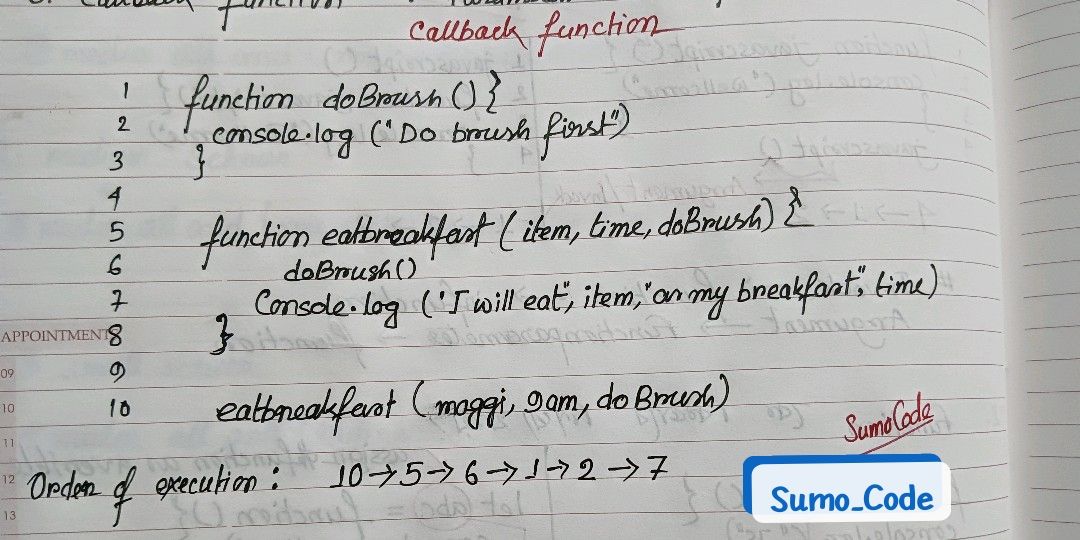 Callback function
1 function doBrush () {
2 console.log ("Do brush first")
3 }
4
5 function eatbreakfast ( item, time, doBrush) {
6 doBrush ()
7 Console.log ('I will eat", item, "as my breakfast", time)
APPOINTMENTS 8 }
09 9
10 10 eatbreakfast ( maggi, 9am, doBrush)
11 SumoCode
12 Order of execution : 10→5→6→1→2→7
13 Sumo_Code